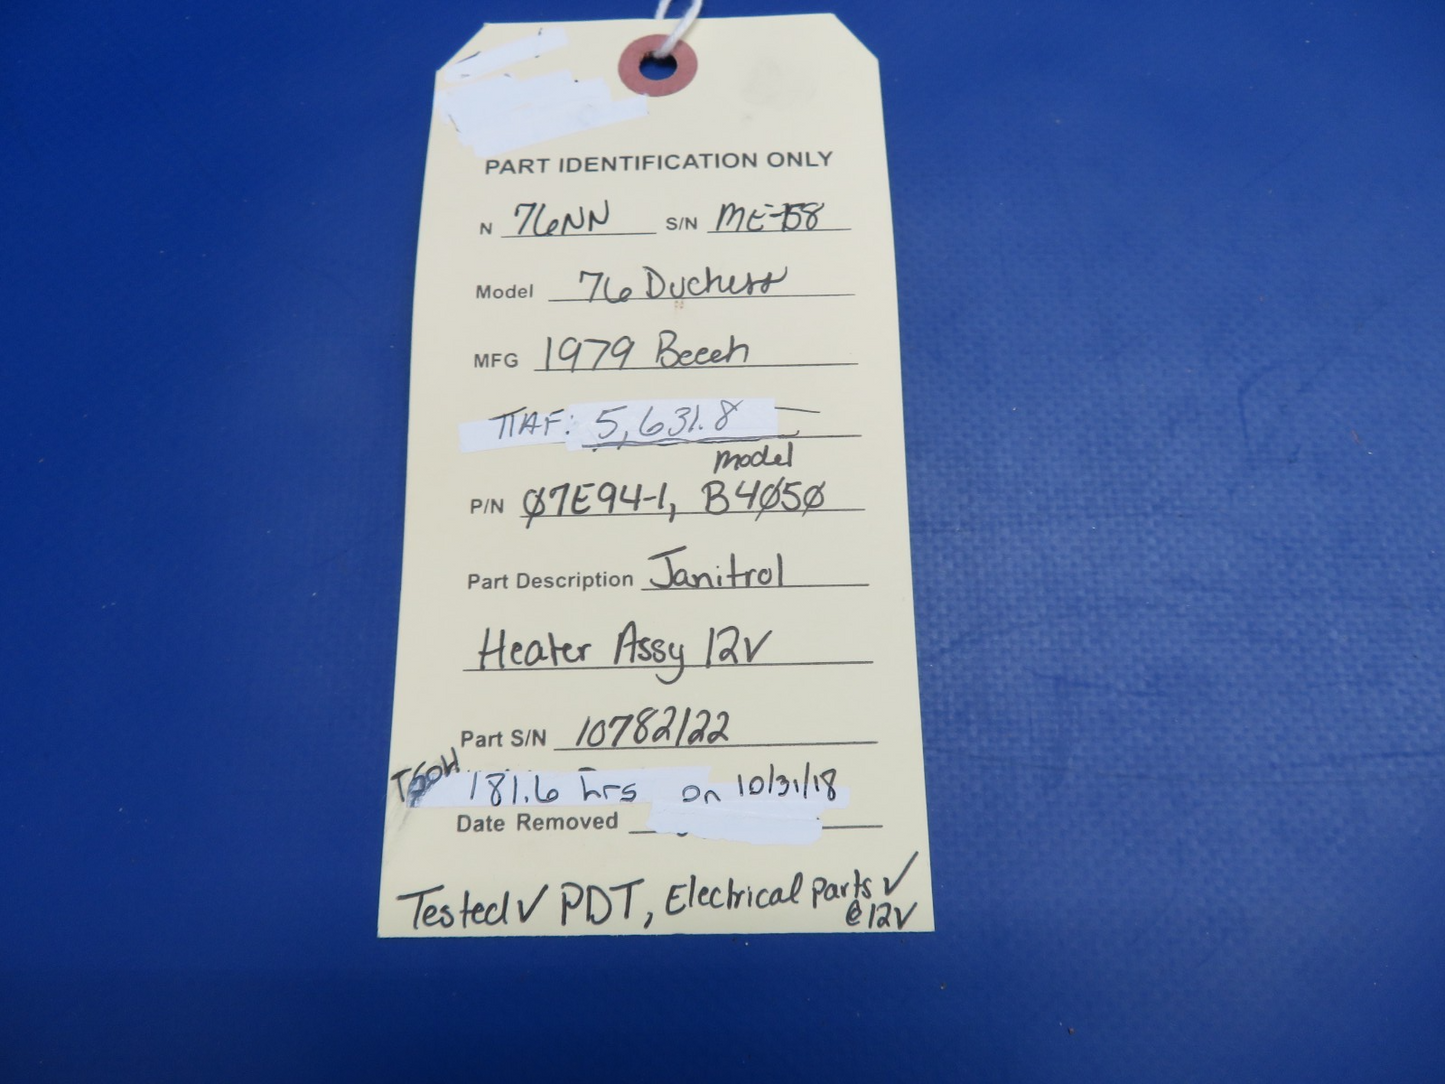 PART IDENTIFICATION ONLY
N 76NN S/N ME-158
Model 76 Duchess
MFG 1979 Beech
TTAF: 5,631.8
model
P/N 07E94-1, B4050
Part Description Janitrol
Heater Assy 12V
Part S/N 10782122
TSOH 181.6 hrs on 10/31/18
Date Removed
Tested ✓ PDT, Electrical parts ✓
@ 12V